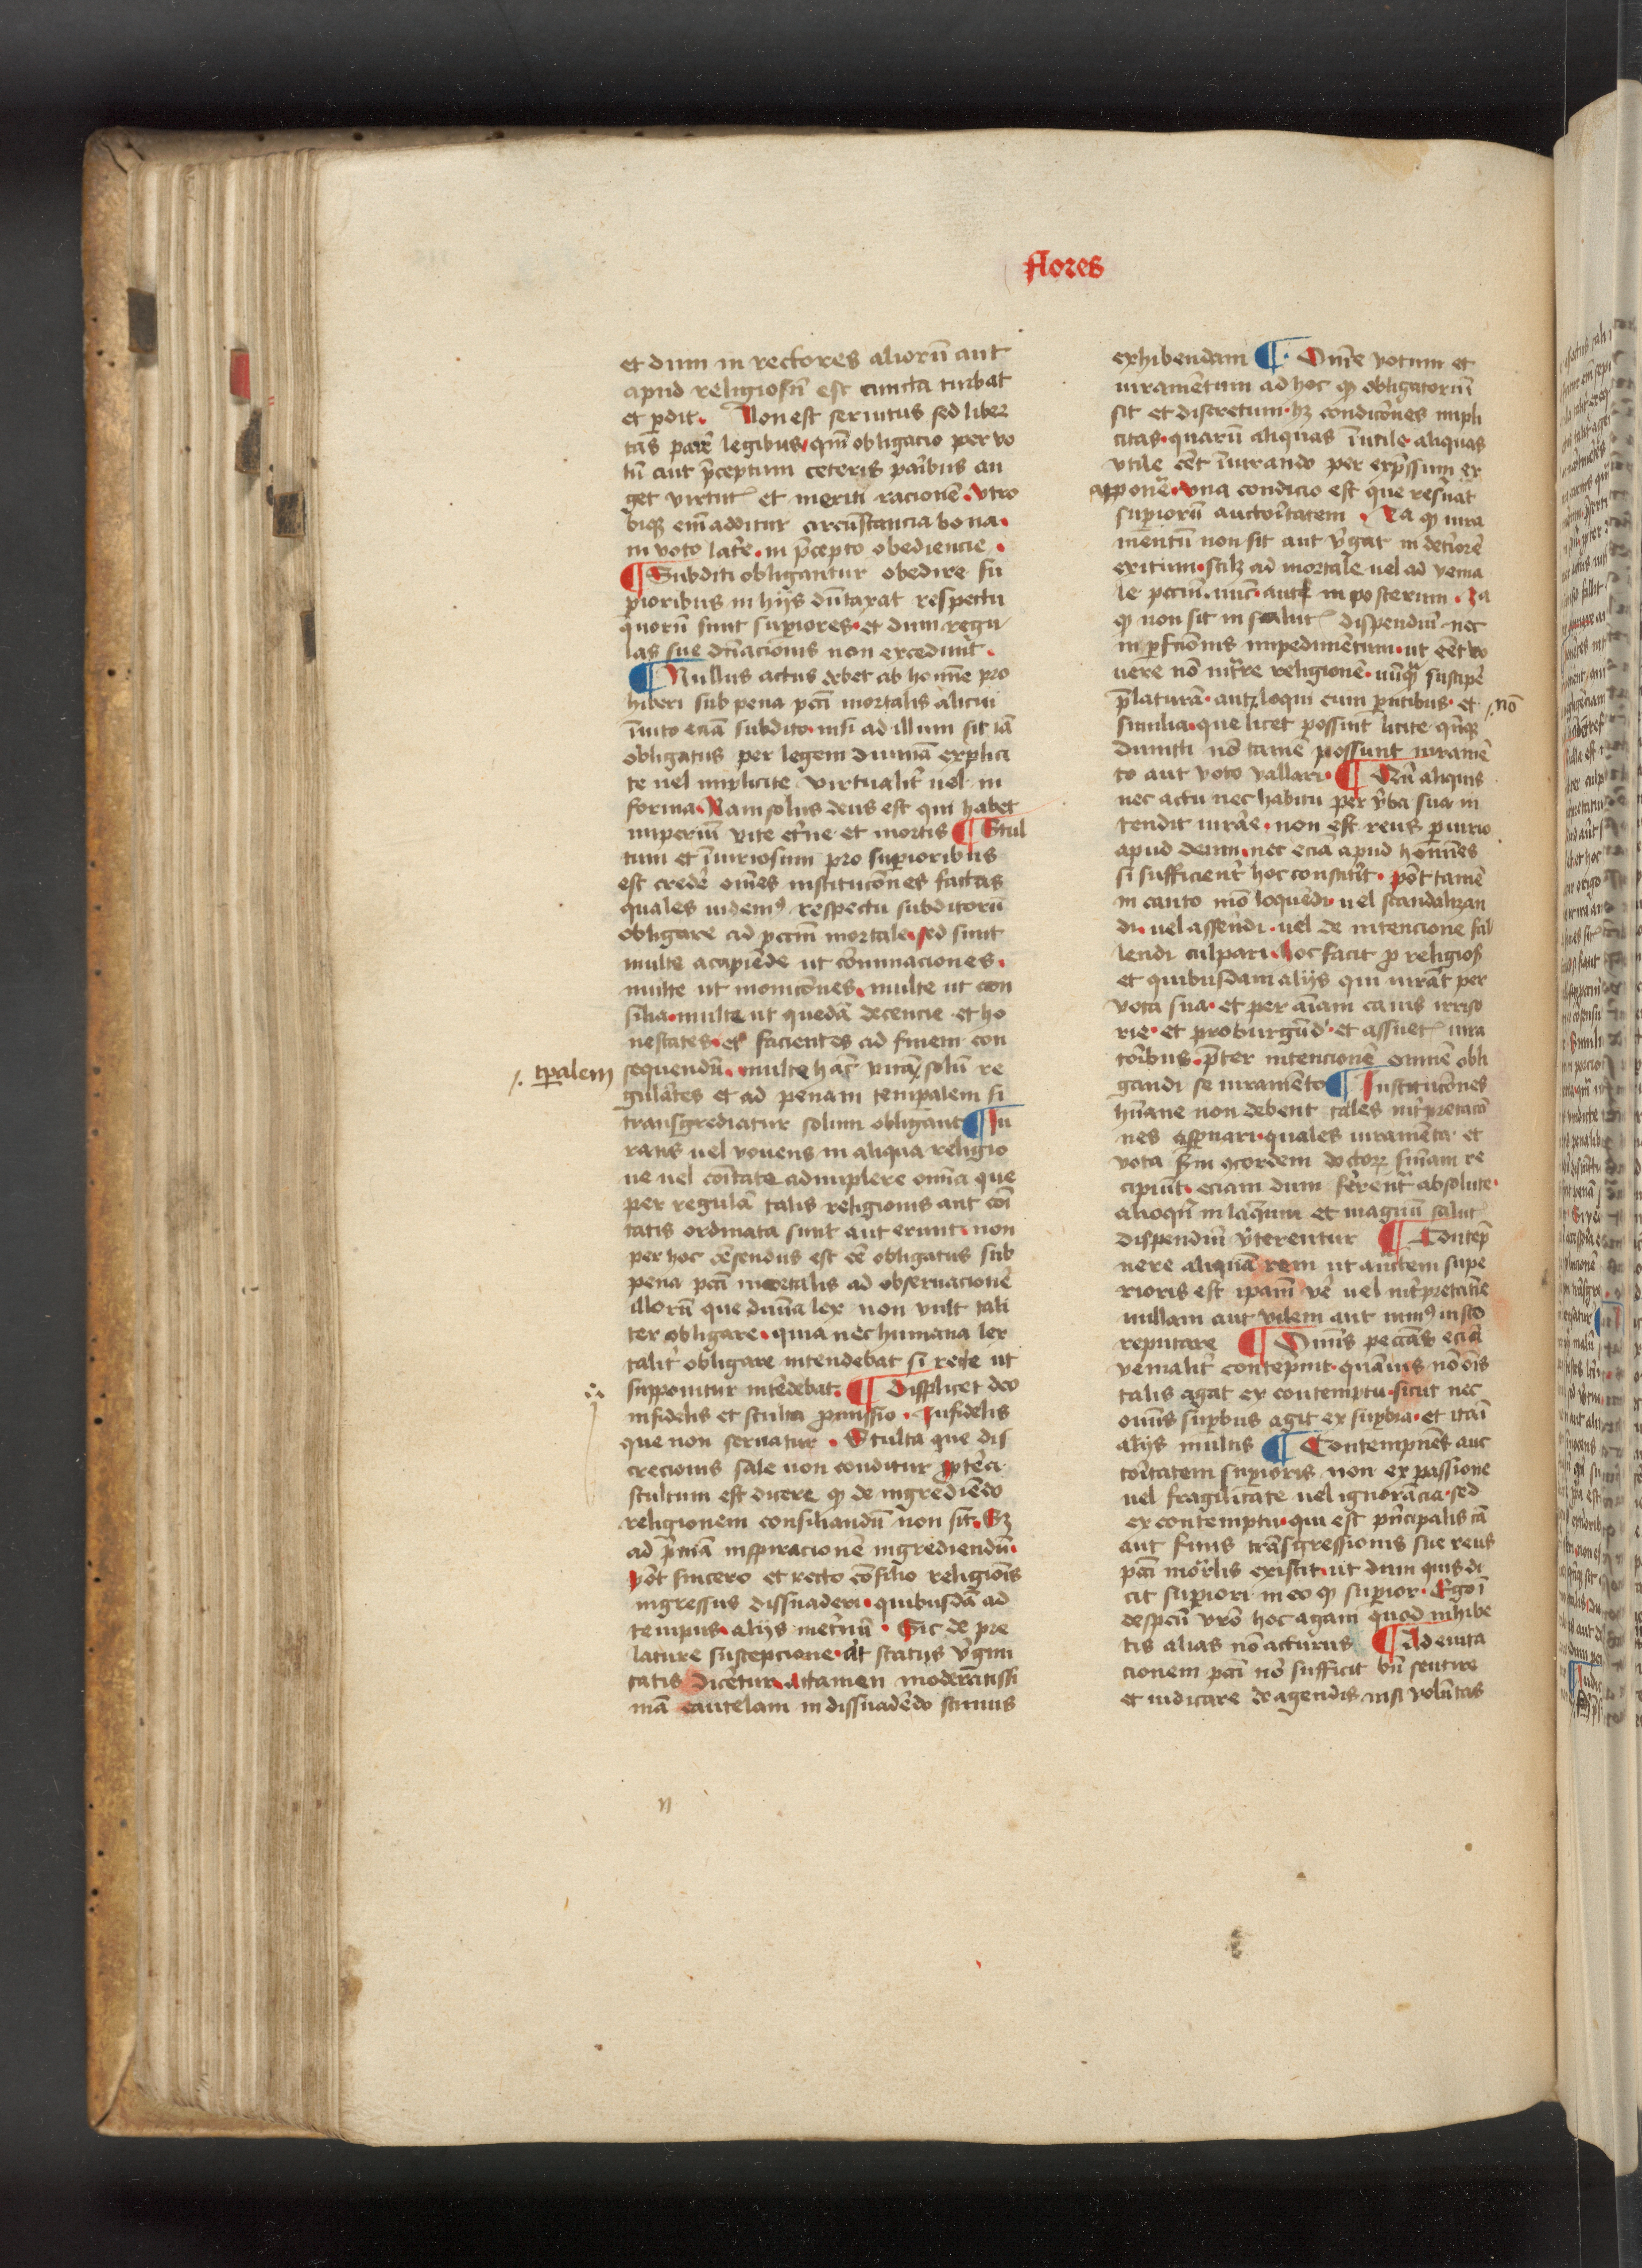 flores
et dum in rectores alioru᷉ aut
apud religiosu᷉ est cuncta turbat
et ꝑdit. Non est seruitus sed liber
tas parer̃ legibus qm̃ obligacio per vo
tu᷉ aut p̃ceptum ceteris parib̃us au
get virtut᷉ et meriti racionē. vtro
biqꝫ em̃ additur circu᷉stancia bona.
in voto lat̃re. in p̃cepto obediencie.
¶ Subditi obligantur obedire su
ꝑioribus in hijs du᷉taxat respectu
quoru᷉ sunt suꝑiores. et dum regu
las sue dn̄acionis non excedunt.
¶ Nullus actus debet ab homīe pro
hiberi sub pena pctī mortalis alicui
īuito eciā subdito. nisi ad illum sit iā
obligatus per legem diuinā explici
te uel implicite virtualit̃ uel in
forma. Nam solus deus est qui habet
imperiu᷉ vite et̃ne et mortis ¶ Stul
tum et īiuriosum pro suꝑioribus
est credẽ om̃es institucōnes factas
quales uidemꝰ respectu subditoru᷉
obligare ad pctm̄ mortale. sed sunt
multe acapiẽde ut cōminaciones.
multe ut monicōnes. multe ut con
silia. multe ut quedā decencie et ho
nestates. et facientes ad finem con
sequendu᷉. multe hac̄ vitā solu᷉ re
/. tꝑalem
gulãtes et ad penam temꝑalem si
transgrediatur solum obligant ¶ Iu
rans uel vouens in aliqua religio
ne uel cōitate adimplere om̃ia que
per regulā talis religionis aut cōi
tatis ordinata sunt aut erunt. non
per hoc cēsendus est ēẽ obligatus sub
pena pctī mortalis ad obseruacionē
illoru᷉ que diuīa lex non vult tali
ter obligare. quia nec humana lex
talit̃ obligare intendebat si recte ut
supponitur intēdebat. ¶ Displicet deo
infidelis et stulta ꝓmissio. Infidelis
que non seruatur. Stulta que dis
crecionis sale non conditur ꝓpterea
stultum est dicere ꝙ de ingrediēdo
religionem consiliandu᷉ non sit. Sꝫ
ad p̃mā inspiracionē ingrediendu᷉.
Pōt sincero et recto cōsilio religiōis
ingressus dissuaderi. quibusdā ad
tempus. alijs inet̃nu᷉. Sic de pre
lature suscepcione. ut status v̄gini
tatis dicetur. Attamen moderātissi
mā cautelam in dissuadēdo scimus
exhibendam ¶ Om̃e votum et
iuramētum ad hoc ꝙ obligatoriu᷉
sit et discretum. hꝫ condicōnes impli
citas. quaru᷉ aliquas īutile aliquas
vtile eēt īiurando per exp̃ssum ex
apponẽ. vna condicio est que resũat
suꝑioru᷉ auctoritatem. Ia ꝙ iura
mentu᷉ non sit aut v̄gat in det̃iorē
exitium. scilꝫ ad mortale uel ad venia
le pctm̄. nūc aut᷉ in posterum. Ia
ꝙ non sit in salut᷉ dispendiu᷉ nec
in ꝑfcīonis impedimētum. ut eēt vo
uere nō int̃re religionē. nūqꝫ suscipẽ
p̃laturā. aut loqui cum ꝑntibus. et
/. nō
similia. que licet possunt licite qn̄qꝫ
dimitti nō tamē possunt iuramē
to aut voto vallari. ¶ Du᷉ aliquis
nec actu nec habitu per v̄ba sua in
tendit iurãe. non est reus ꝑiurio
apud deum. nec eciā apud homīes
si sufficient̃ hoc constit̃it. pōt tamē
in cauto mō loquēdi. uel scandalizan
di. uel assẽndi. uel de intencione fal
lendi culpari. hoc facit ꝓ religios̃
et quibusdam alijs qui iurāt per
vota sua. et per aīam canis irriso
rie. et pro burgūd᷉. et assuet᷉ iura
torib̃us. p̃ter intencionē omnē obli
gandi se iuramēto ¶ Institucōnes
hūane non debent tales int̃pretacō
nes asp̃nari. quales iuramēta et
vota sm̄ ꝯcordem doctoꝝ sn̄iam re
cipiūt. eciam dum fẽrent̃ absolute.
alioqn̄ in laq̃um et magnu᷉ salut᷉
dispendiu᷉ v̄terentur ¶ Contēp
nere aliquā rem ut auct̃em supe
rioris est ipam̄ vẽ uel int̃pretatie
nullam aut vilem aut minꝰ iusto
reputare ¶ Om̃is peccās eciā
venialit̃ contēpnit. quāuis nō om̃is
talis agat ex contemptu. sicut nec
om̃is suꝑbus agit ex suꝑbia. et itaī
alijs multis ¶ Contempnēs auc
toritatem suꝑioris non ex passione
uel fragilitate uel ignorācia. sed
ex contemptu. qui est pn̄cipalis cā
aut finis trāsgressionis sue reus
pctī mort̃lis existit. ut dum quis di
cit suꝑiori in eo ꝙ suꝑior. Ergo ī
despcū vr̄o hoc agam quod inhibe
tis alias nō acturus ¶ Ad euita
cionem pctī nō sufficit bn̄ sentire
et iudicare de agendis. nisi volūtas